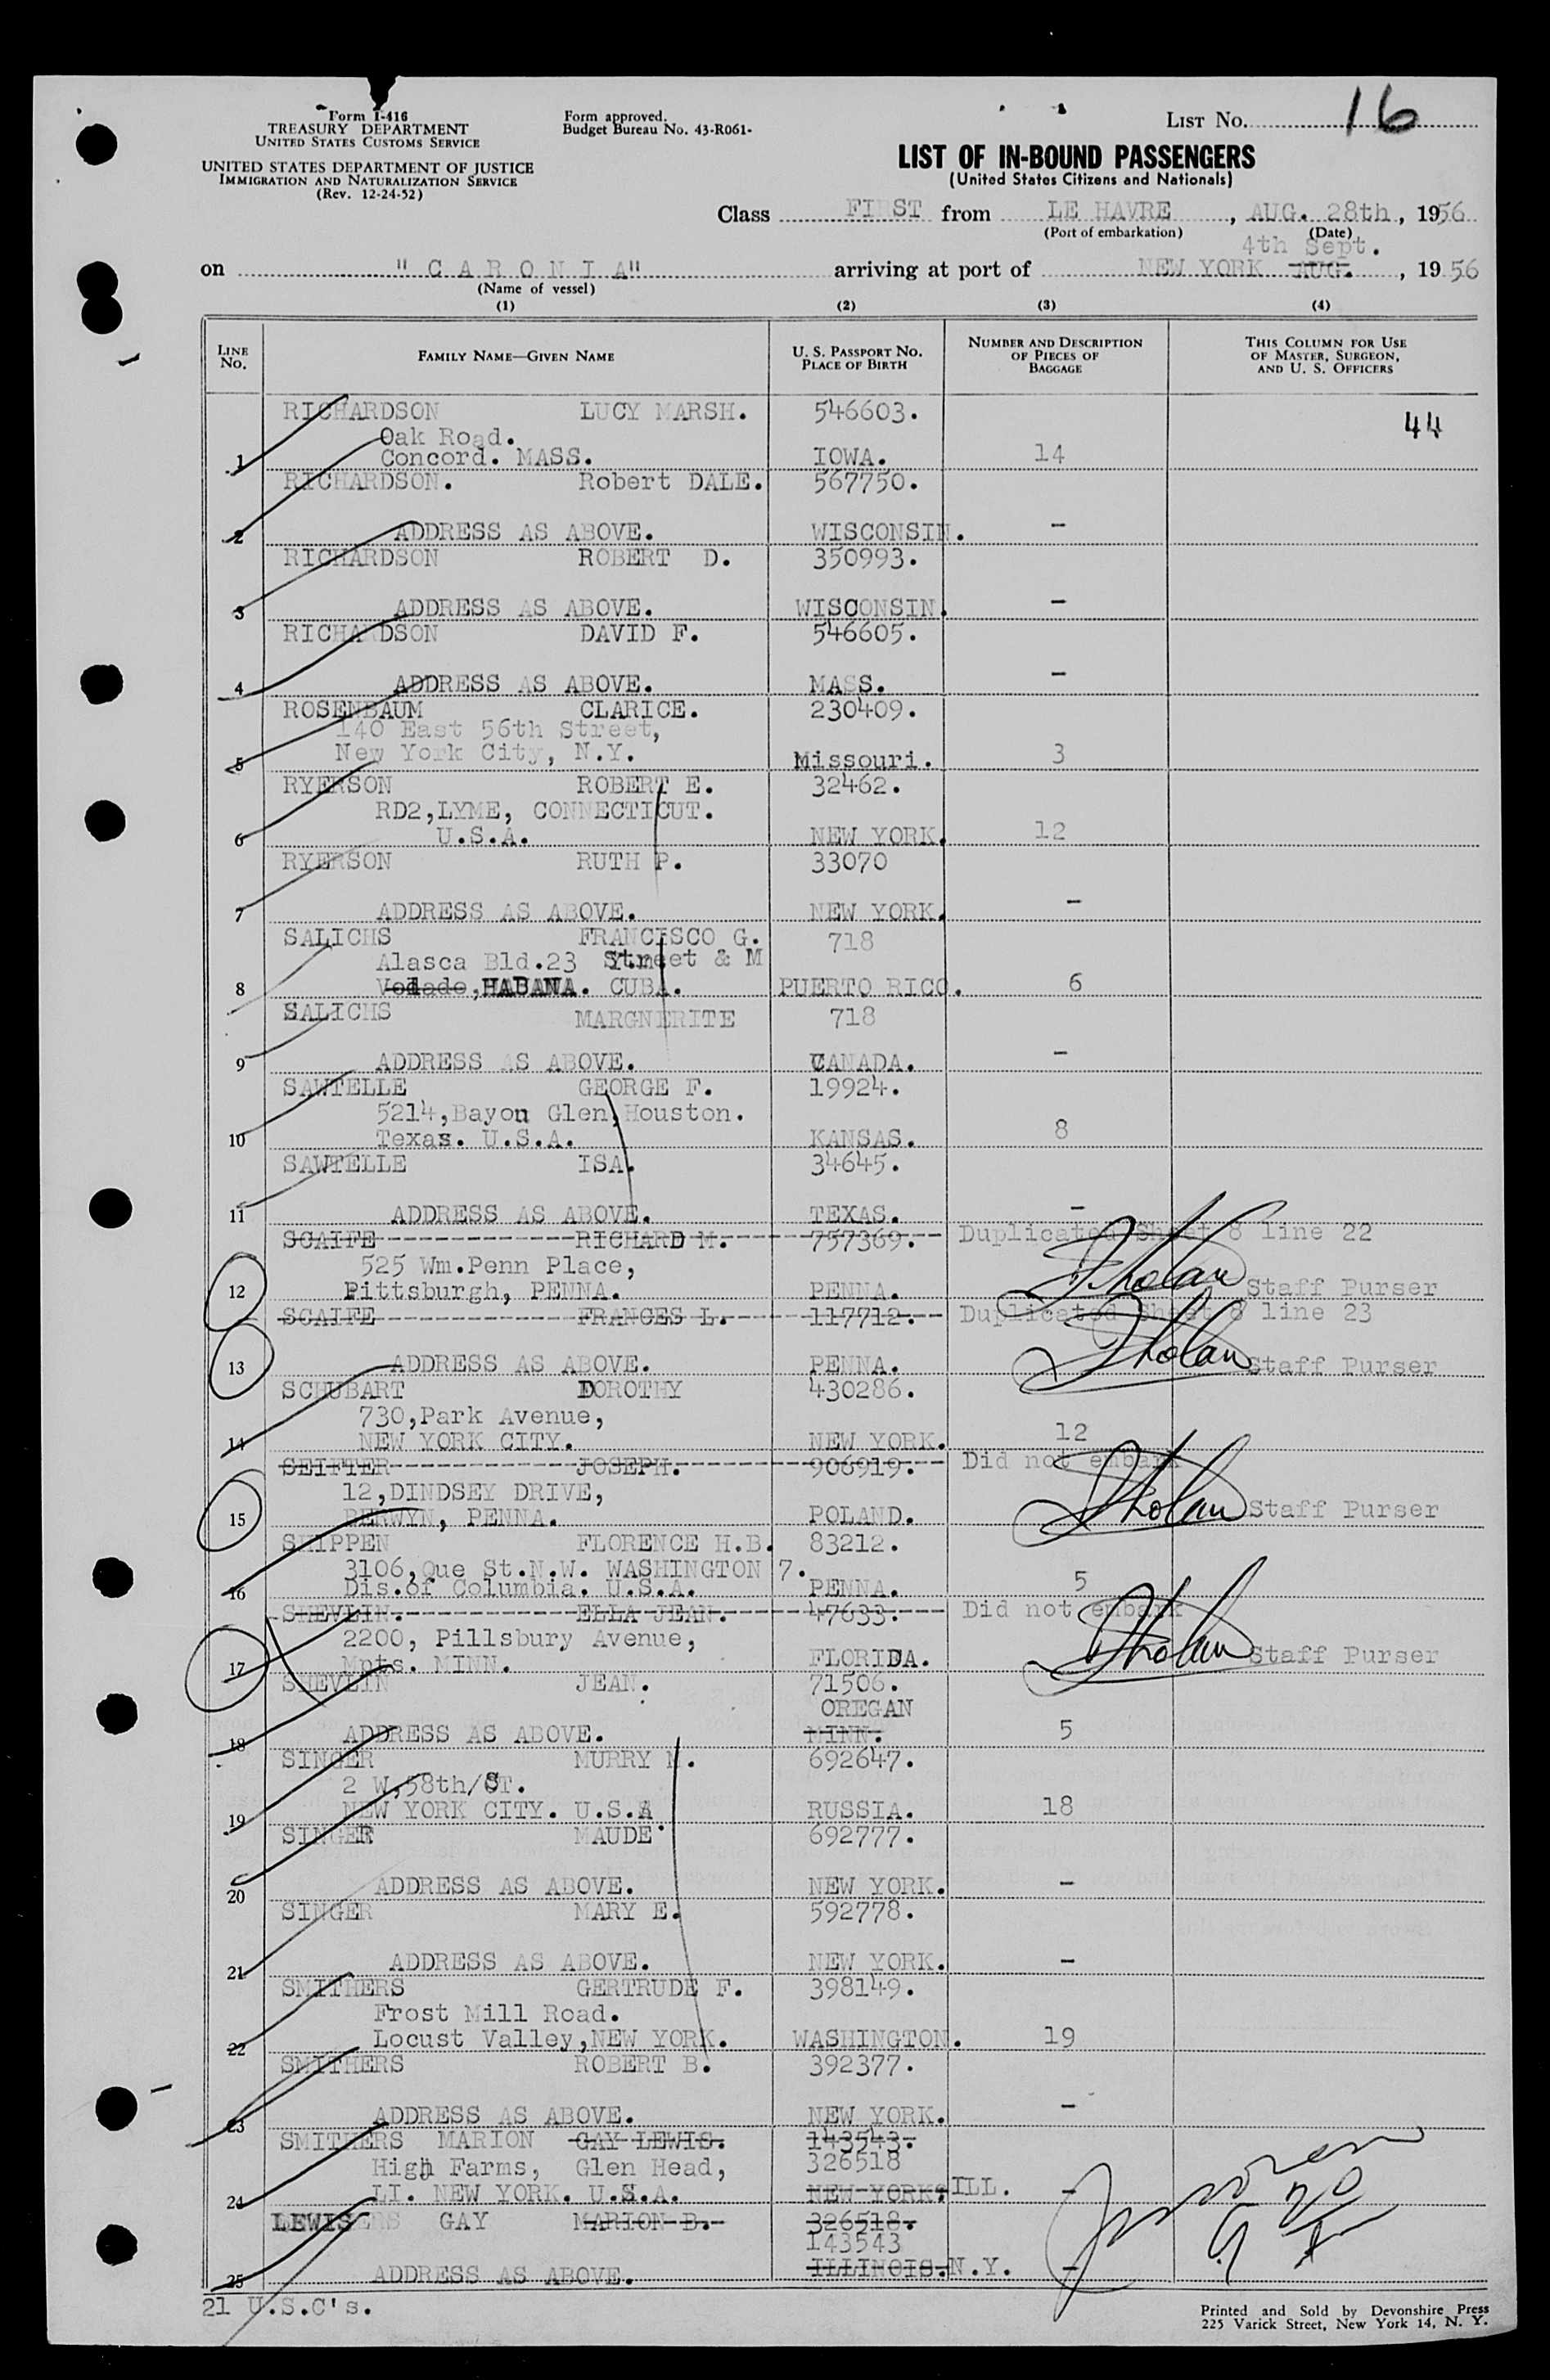 Form I-416
TREASURY DEPARTMENT
UNITED STATES CUSTOMS SERVICE
UNITED STATES DEPARTMENT OF JUSTICE
IMMIGRATION AND NATURALIZATION SERVICE
(Rev. 12-24-52)
Form approved.
Budget Bureau No. 43-R061-
LIST No. 16
LIST OF IN-BOUND PASSENGERS
(United States Citizens and Nationals)
Class FIRST from LE HAVRE, AUG. 28th, 1956
(Port of embarkation) (Date)
4th Sept.
on "CARONIA" arriving at port of NEW YORK AUG., 1956
(Name of vessel)
(1) (2) (3) (4)
LINE No. FAMILY NAME—GIVEN NAME U. S. PASSPORT No. PLACE OF BIRTH NUMBER AND DESCRIPTION OF PIECES OF BAGGAGE THIS COLUMN FOR USE OF MASTER, SURGEON, AND U. S. OFFICERS
RICHARDSON LUCY MARSH. 546603.
44
Oak Road.
1 Concord. MASS. IOWA. 14
RICHARDSON. Robert DALE. 567750.
2 ADDRESS AS ABOVE. WISCONSIN. -
RICHARDSON ROBERT D. 350993.
3 ADDRESS AS ABOVE. WISCONSIN. -
RICHARDSON DAVID F. 546605.
4 ADDRESS AS ABOVE. MASS. -
ROSENBAUM CLARICE. 230409.
140 East 56th Street,
5 New York City, N.Y. Missouri. 3
RYERSON ROBERT E. 32462.
RD2,LYME, CONNECTICUT.
6 U.S.A. NEW YORK. 12
RYERSON RUTH P. 33070
7 ADDRESS AS ABOVE. NEW YORK. -
SALICHS FRANCISCO G. 718
Alasca Bld.23 Street & M
8 Vodado,HABANA. CUBA. PUERTO RICO. 6
SALICHS MARGNERITE 718
9 ADDRESS AS ABOVE. CANADA. -
SAWTELLE GEORGE F. 19924.
5214,Bayou Glen,Houston.
10 Texas. U.S.A. KANSAS. 8
SAWTELLE ISA. 34645.
11 ADDRESS AS ABOVE. TEXAS. -
SCAIFE RICHARD M. 757369. Duplicated Sheet 8 line 22
525 Wm.Penn Place,
12 Pittsburgh, PENNA. PENNA. Staff Purser
SCAIFE FRANCES L. 117712. Duplicated Sheet 8 line 23
13 ADDRESS AS ABOVE. PENNA. Staff Purser
SCHUBART DOROTHY 430286.
730,Park Avenue,
14 NEW YORK CITY. NEW YORK. 12
SEIFTER JOSEPH. 906919. Did not embark
12,DINDSEY DRIVE,
15 BERWYN, PENNA. POLAND. Staff Purser
SHIPPEN FLORENCE H.B. 83212.
3106,Que St.N.W. WASHINGTON 7.
16 Dis.of Columbia. U.S.A. PENNA. 5
SHEVLIN. ELLA JEAN. 47633. Did not embark
2200, Pillsbury Avenue,
17 Mpts. MINN. FLORIDA. Staff Purser
SHEVLIN JEAN. 71506.
OREGAN
18 ADDRESS AS ABOVE. MINN. 5
SINGER MURRY M. 692647.
2 W,58th/ST.
19 NEW YORK CITY. U.S.A RUSSIA. 18
SINGER MAUDE 692777.
20 ADDRESS AS ABOVE. NEW YORK. -
SINGER MARY E. 592778.
21 ADDRESS AS ABOVE. NEW YORK. -
SMITHERS GERTRUDE F. 398149.
Frost Mill Road.
22 Locust Valley,NEW YORK. WASHINGTON. 19
SMITHERS ROBERT B. 392377.
23 ADDRESS AS ABOVE. NEW YORK. -
SMITHERS MARION GAY LEWIS. 143543.
High Farms, Glen Head, 326518
24 LI. NEW YORK. U.S.A. NEW YORK. ILL. -
LEWIS GAY MARION B. 326518.
143543
25 ADDRESS AS ABOVE. ILLINOIS. N.Y. -
21 U.S.C's.
Printed and Sold by Devonshire Press
225 Varick Street, New York 14, N. Y.